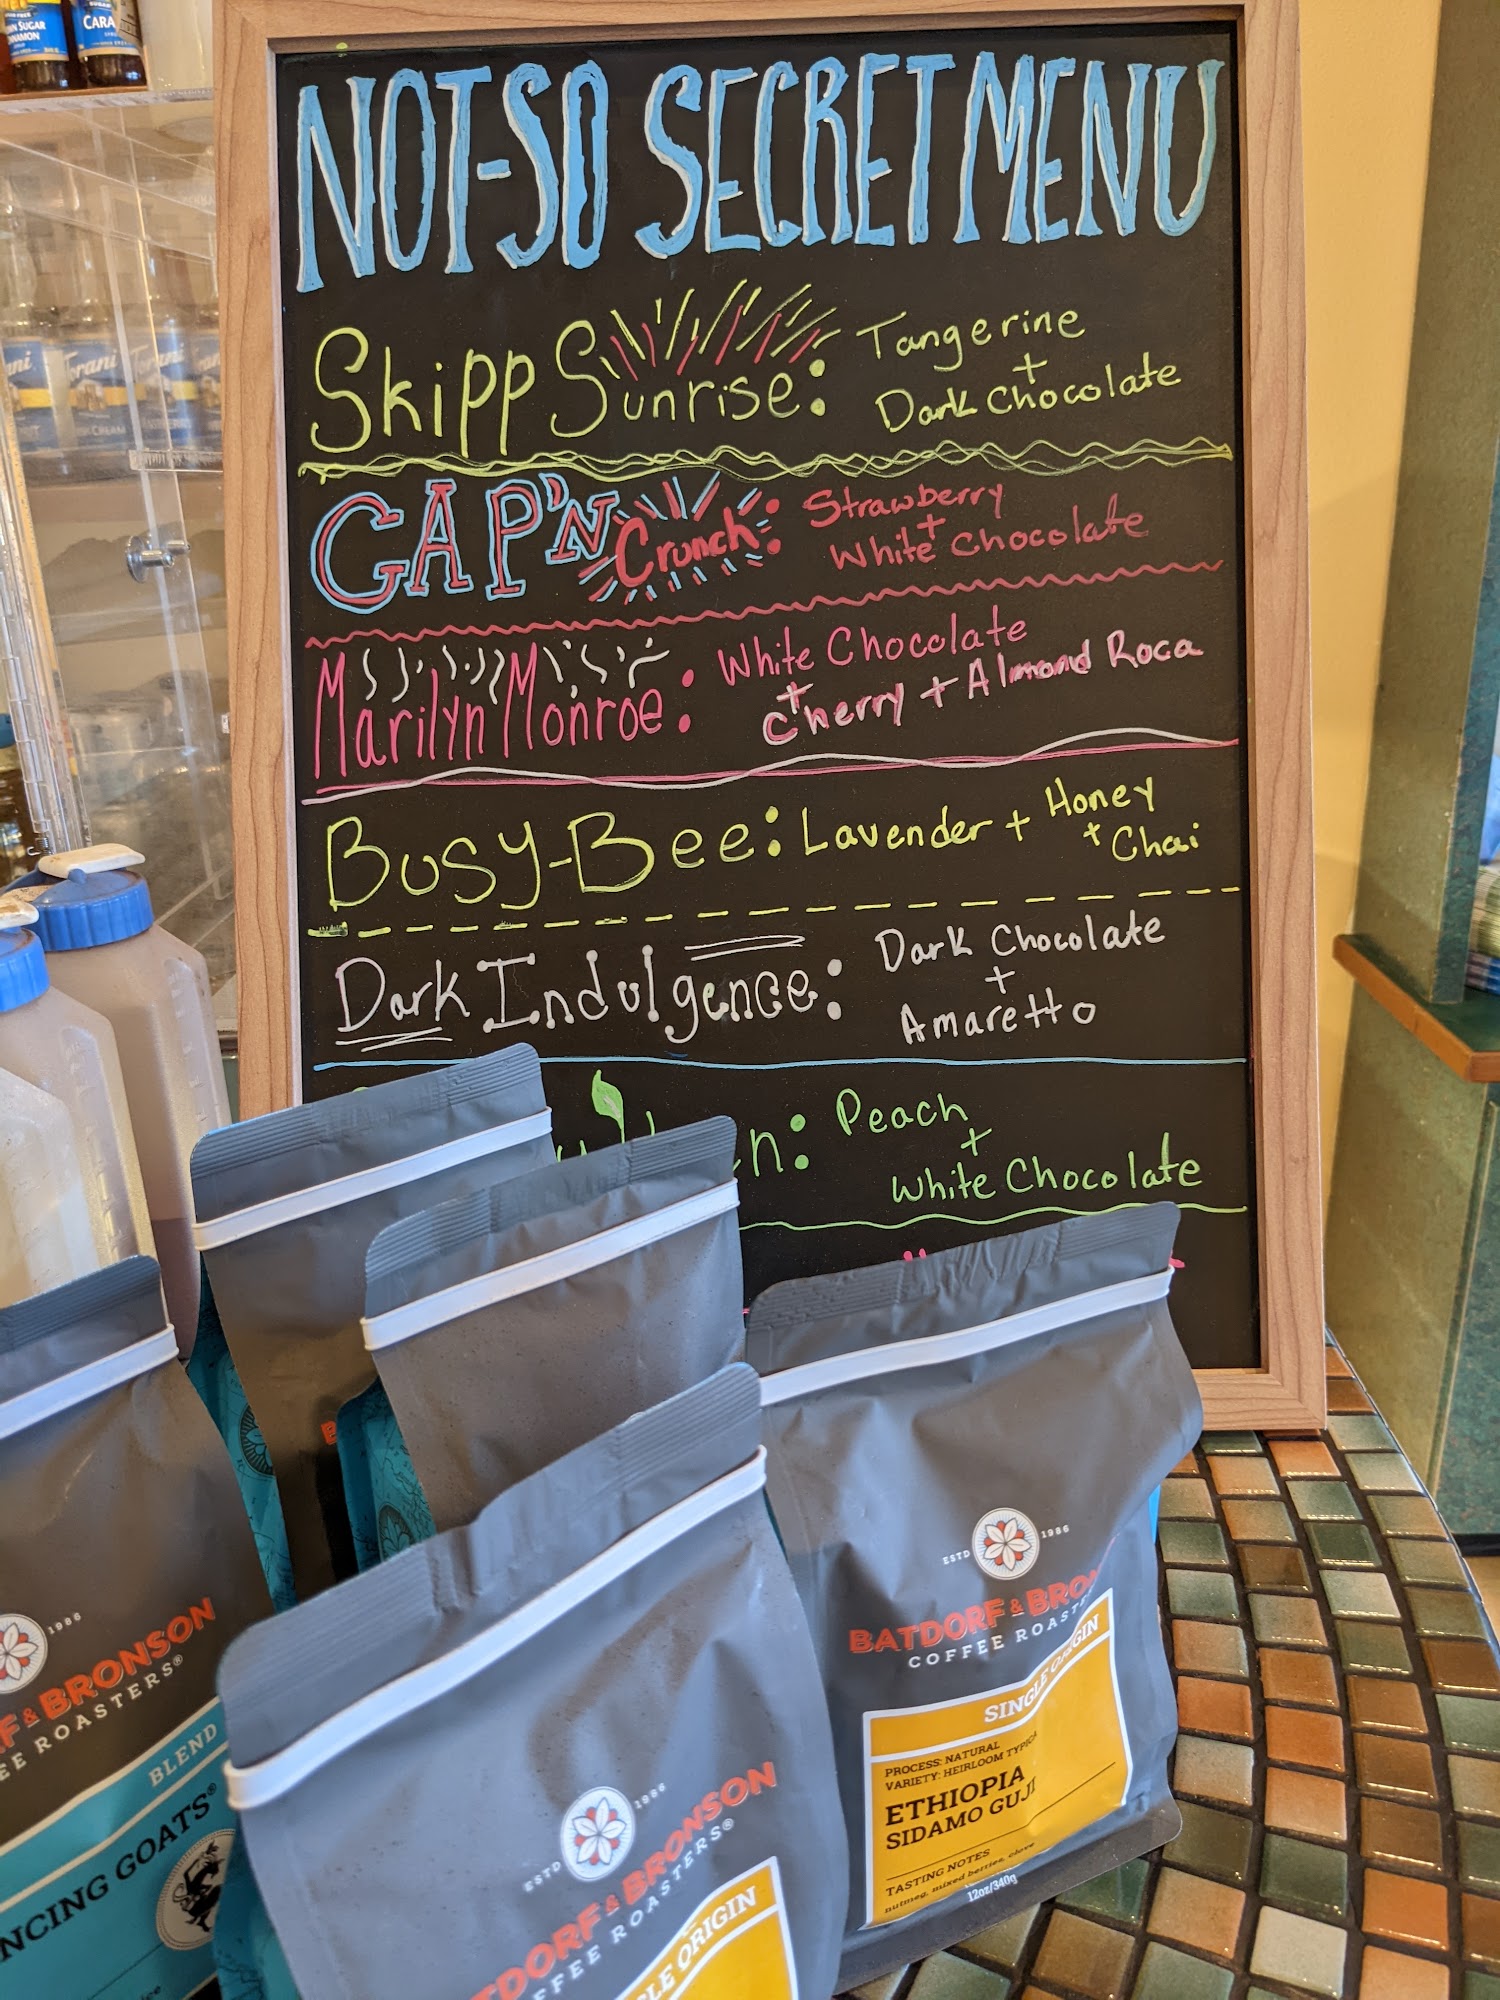 NOT-SO SECRET MENU
Skipp Sunrise: Tangerine
+
Dark Chocolate
CAP'N Crunch: Strawberry
+
White Chocolate
Marilyn Monroe: White Chocolate
+
Cherry + Almond Roca
Busy-Bee: Lavender + Honey
+ Chai
Dark Indulgence: Dark Chocolate
+
Amaretto
Peach
+
White Chocolate
ESTD 1986
BATDORF & BRO
COFFEE ROAST
SINGLE ORIGIN
PROCESS: NATURAL
VARIETY: HEIRLOOM TYPICA
ETHIOPIA
SIDAMO GUJI
TASTING NOTES
nutmeg, mixed berries, clove
12oz/340g
1986
F & BRONSON
EE ROASTERS®
BLEND
NCING GOATS®
ESTD 1986
TDORF & BRONSON
FFEE ROASTERS®
LE ORIGIN
CARA
SUGAR
Torani